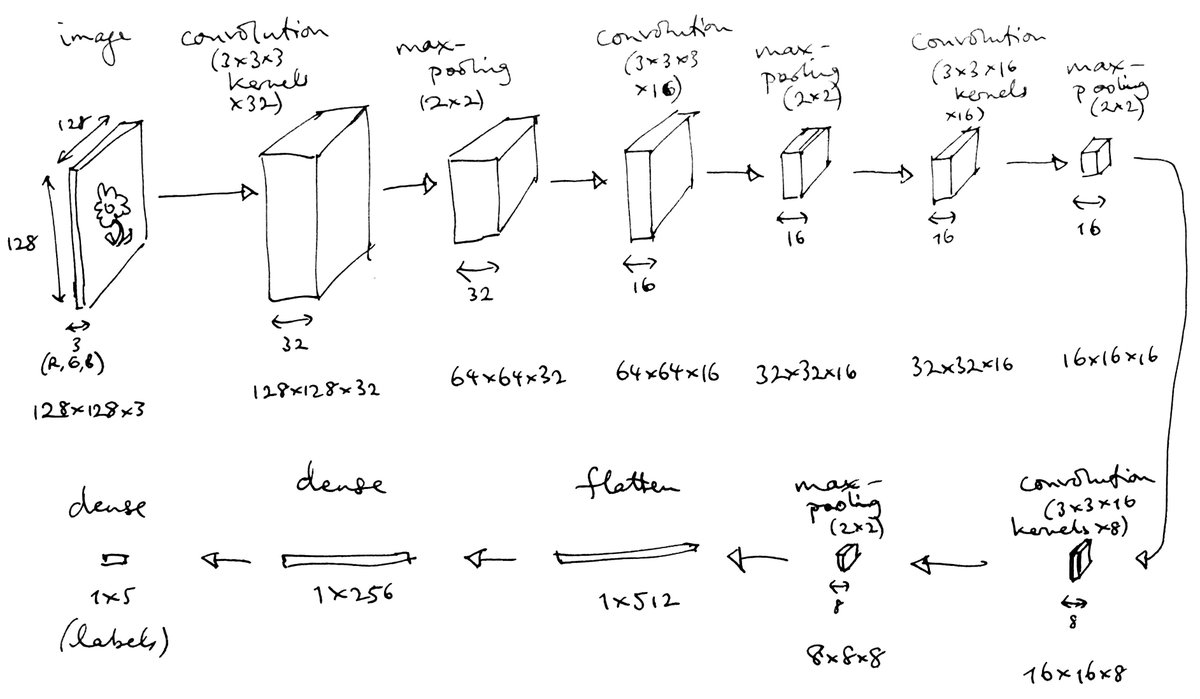 image
convolution
(3×3×3
kernels
×32)
max-
pooling
(2×2)
convolution
(3×3×3
×16)
max-
pooling
(2×2)
convolution
(3×3×16
kernels
×16)
max-
pooling
(2×2)
128
128
3
(R,G,B)
128×128×3
32
128×128×32
32
64×64×32
16
64×64×16
16
32×32×16
16
32×32×16
16
16×16×16
dense
1×5
(labels)
dense
1×256
flatten
1×512
max-
pooling
(2×2)
8
8×8×8
convolution
(3×3×16
kernels×8)
8
16×16×8